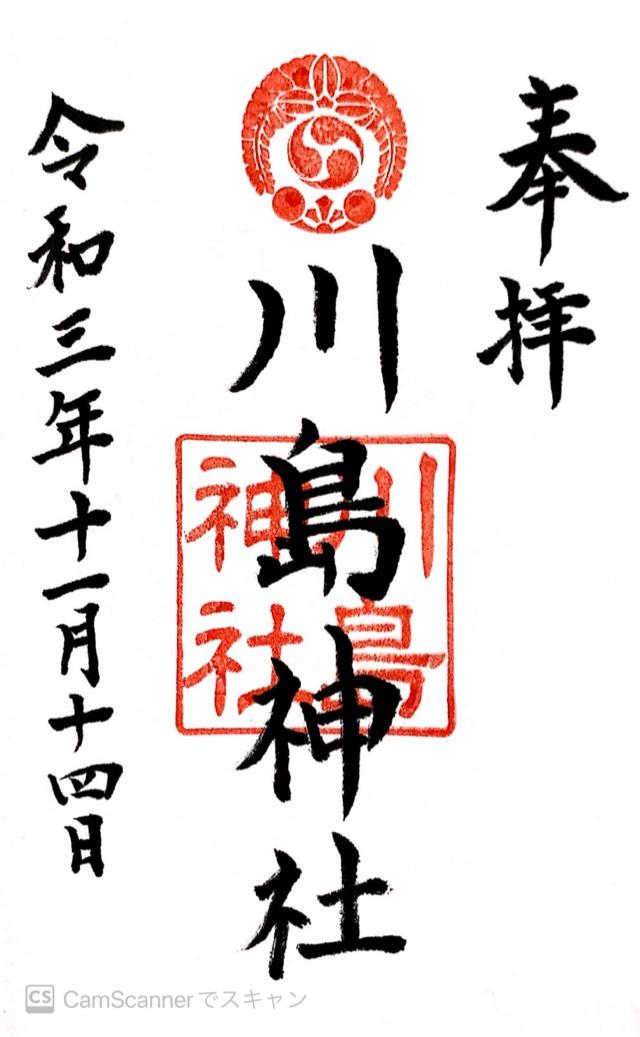 奉拝
川島神社
川島
神社
令和三年十一月十四日
CS CamScannerでスキャン